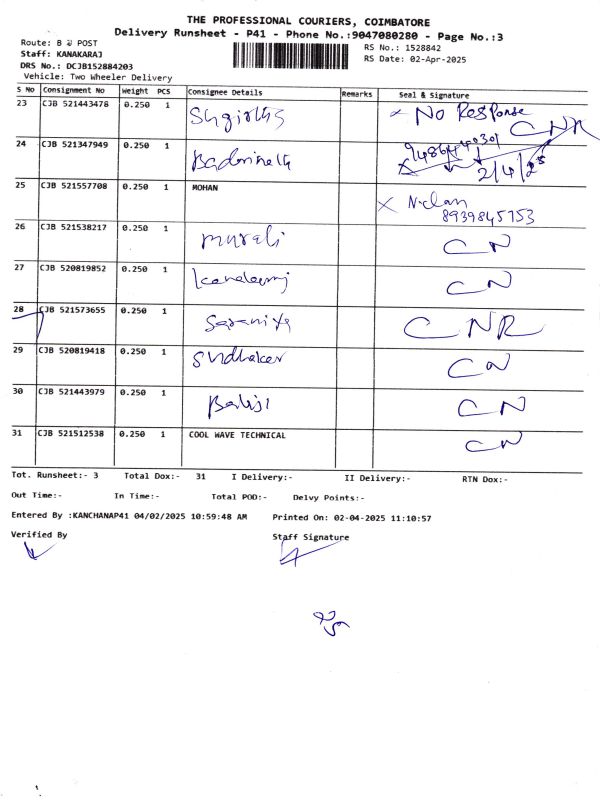 THE PROFESSIONAL COURIERS, COIMBATORE
Delivery Runsheet - P41 - Phone No.:9047080280 - Page No.:3
Route: B POST
RS No.: 1528842
Staff: KANAKARAJ
RS Date: 02-Apr-2025
DRS No.: DCJB152884203
Vehicle: Two Wheeler Delivery
S No Consignment No Weight PCS Consignee Details Remarks Seal & Signature
23 CJB 521443478 0.250 1 No Response CNR
24 CJB 521347949 0.250 1 2/4/25
25 CJB 521557708 0.250 1 MOHAN 8939845753
26 CJB 521538217 0.250 1 murali CN
27 CJB 520819852 0.250 1 CN
28 CJB 521573655 0.250 1 Saraniya CNR
29 CJB 520819418 0.250 1 Sudhaker CN
30 CJB 521443979 0.250 1 Balaji CN
31 CJB 521512538 0.250 1 COOL WAVE TECHNICAL CN
Tot. Runsheet:- 3 Total Dox:- 31 I Delivery:- II Delivery:- RTN Dox:-
Out Time:- In Time:- Total POD:- Delvy Points:-
Entered By :KANCHANAP41 04/02/2025 10:59:48 AM Printed On: 02-04-2025 11:10:57
Verified By Staff Signature